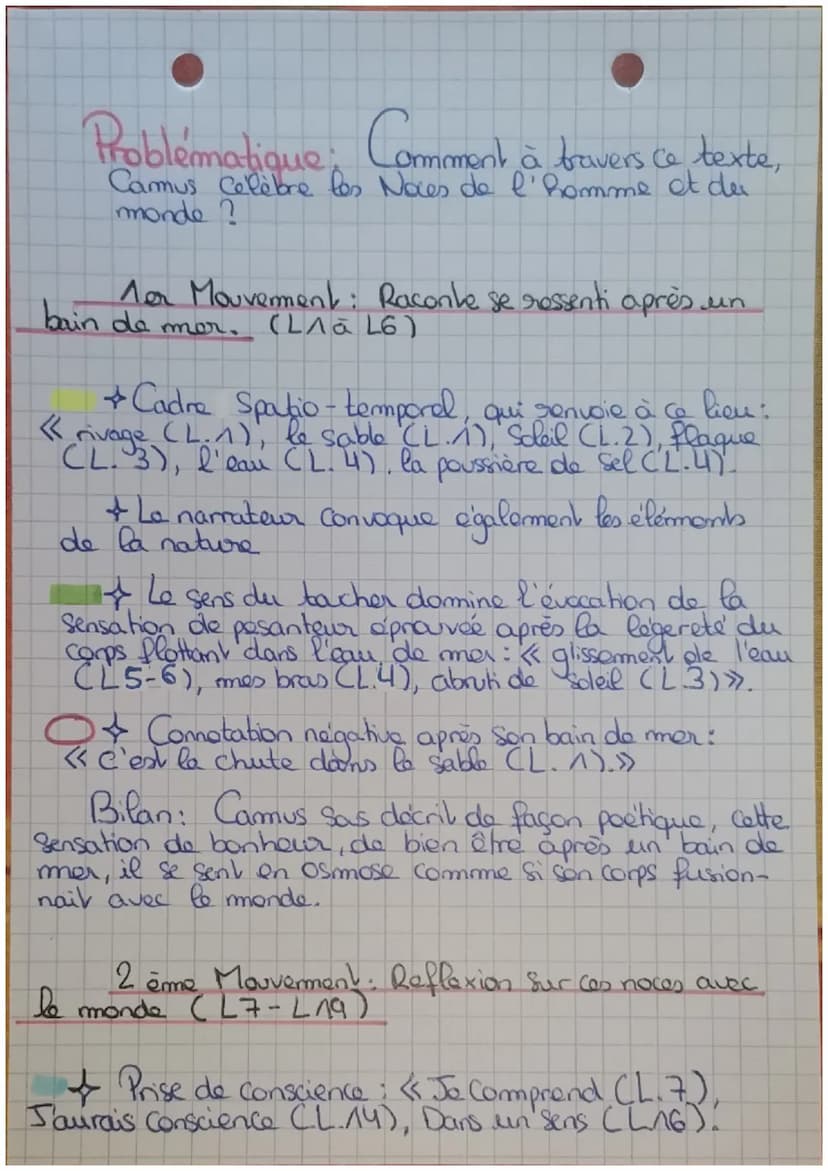 Problématique : Comment à travers ce texte,
Camus célèbre les Noces de l'homme et du
monde ?
1er Mouvement : Raconte se ressenti après un
bain de mer. (L1 à L6)
+ Cadre Spatio-temporel, qui renvoie à ce lieu :
« rivage (L.1), le sable (L.1), Soleil (L.2), flaque
(L. 3), l'eau (L. 4), la poussière de sel (L.4).
+ Le narrateur convoque également les éléments
de la nature
+ Le sens du tacher domine l'évocation de la
sensation de pesanteur éprouvée après la légereté du
corps flottant dans l'eau de mer : « glissement de l'eau
(L5-6), mes bras (L.4), abruti de soleil (L.3) ».
+ Connotation négative après son bain de mer :
« c'est la chute dans le sable (L. 1). »
Bilan : Camus sas décrit de façon poétique, cette
sensation de bonheur, de bien être après un bain de
mer, il se sent en osmose comme si son corps fusion-
nait avec le monde.
2 ème Mouvement : Reflexion sur ces noces avec
le monde (L7-L19)
+ Prise de conscience : « Je comprend (L.7),
J'aurais conscience (L.14), Dans un sens (L16).